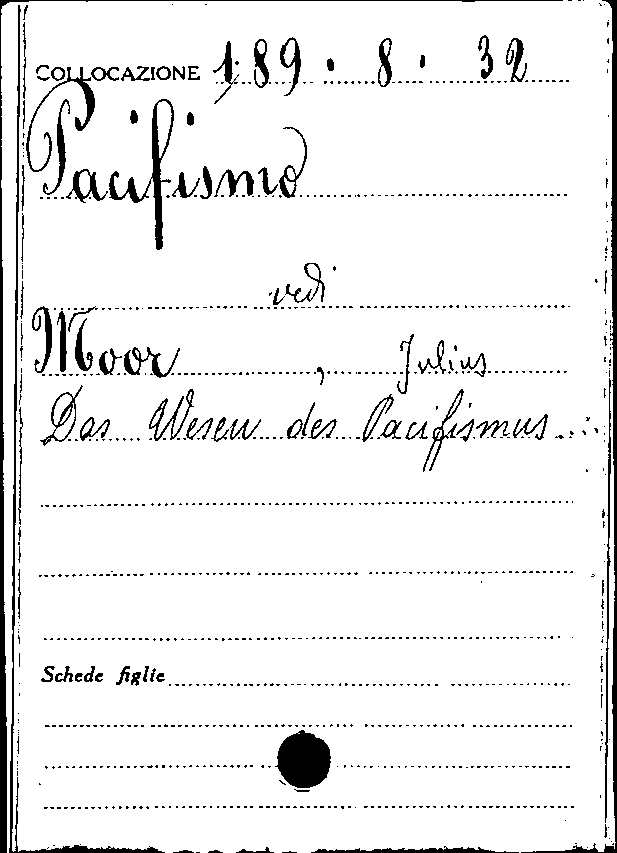 COLLOCAZIONE 189. 8. 32
Pacifismo
vedi
Moor, Julius
Das Wesen des Pacifismus...
Schede figlie